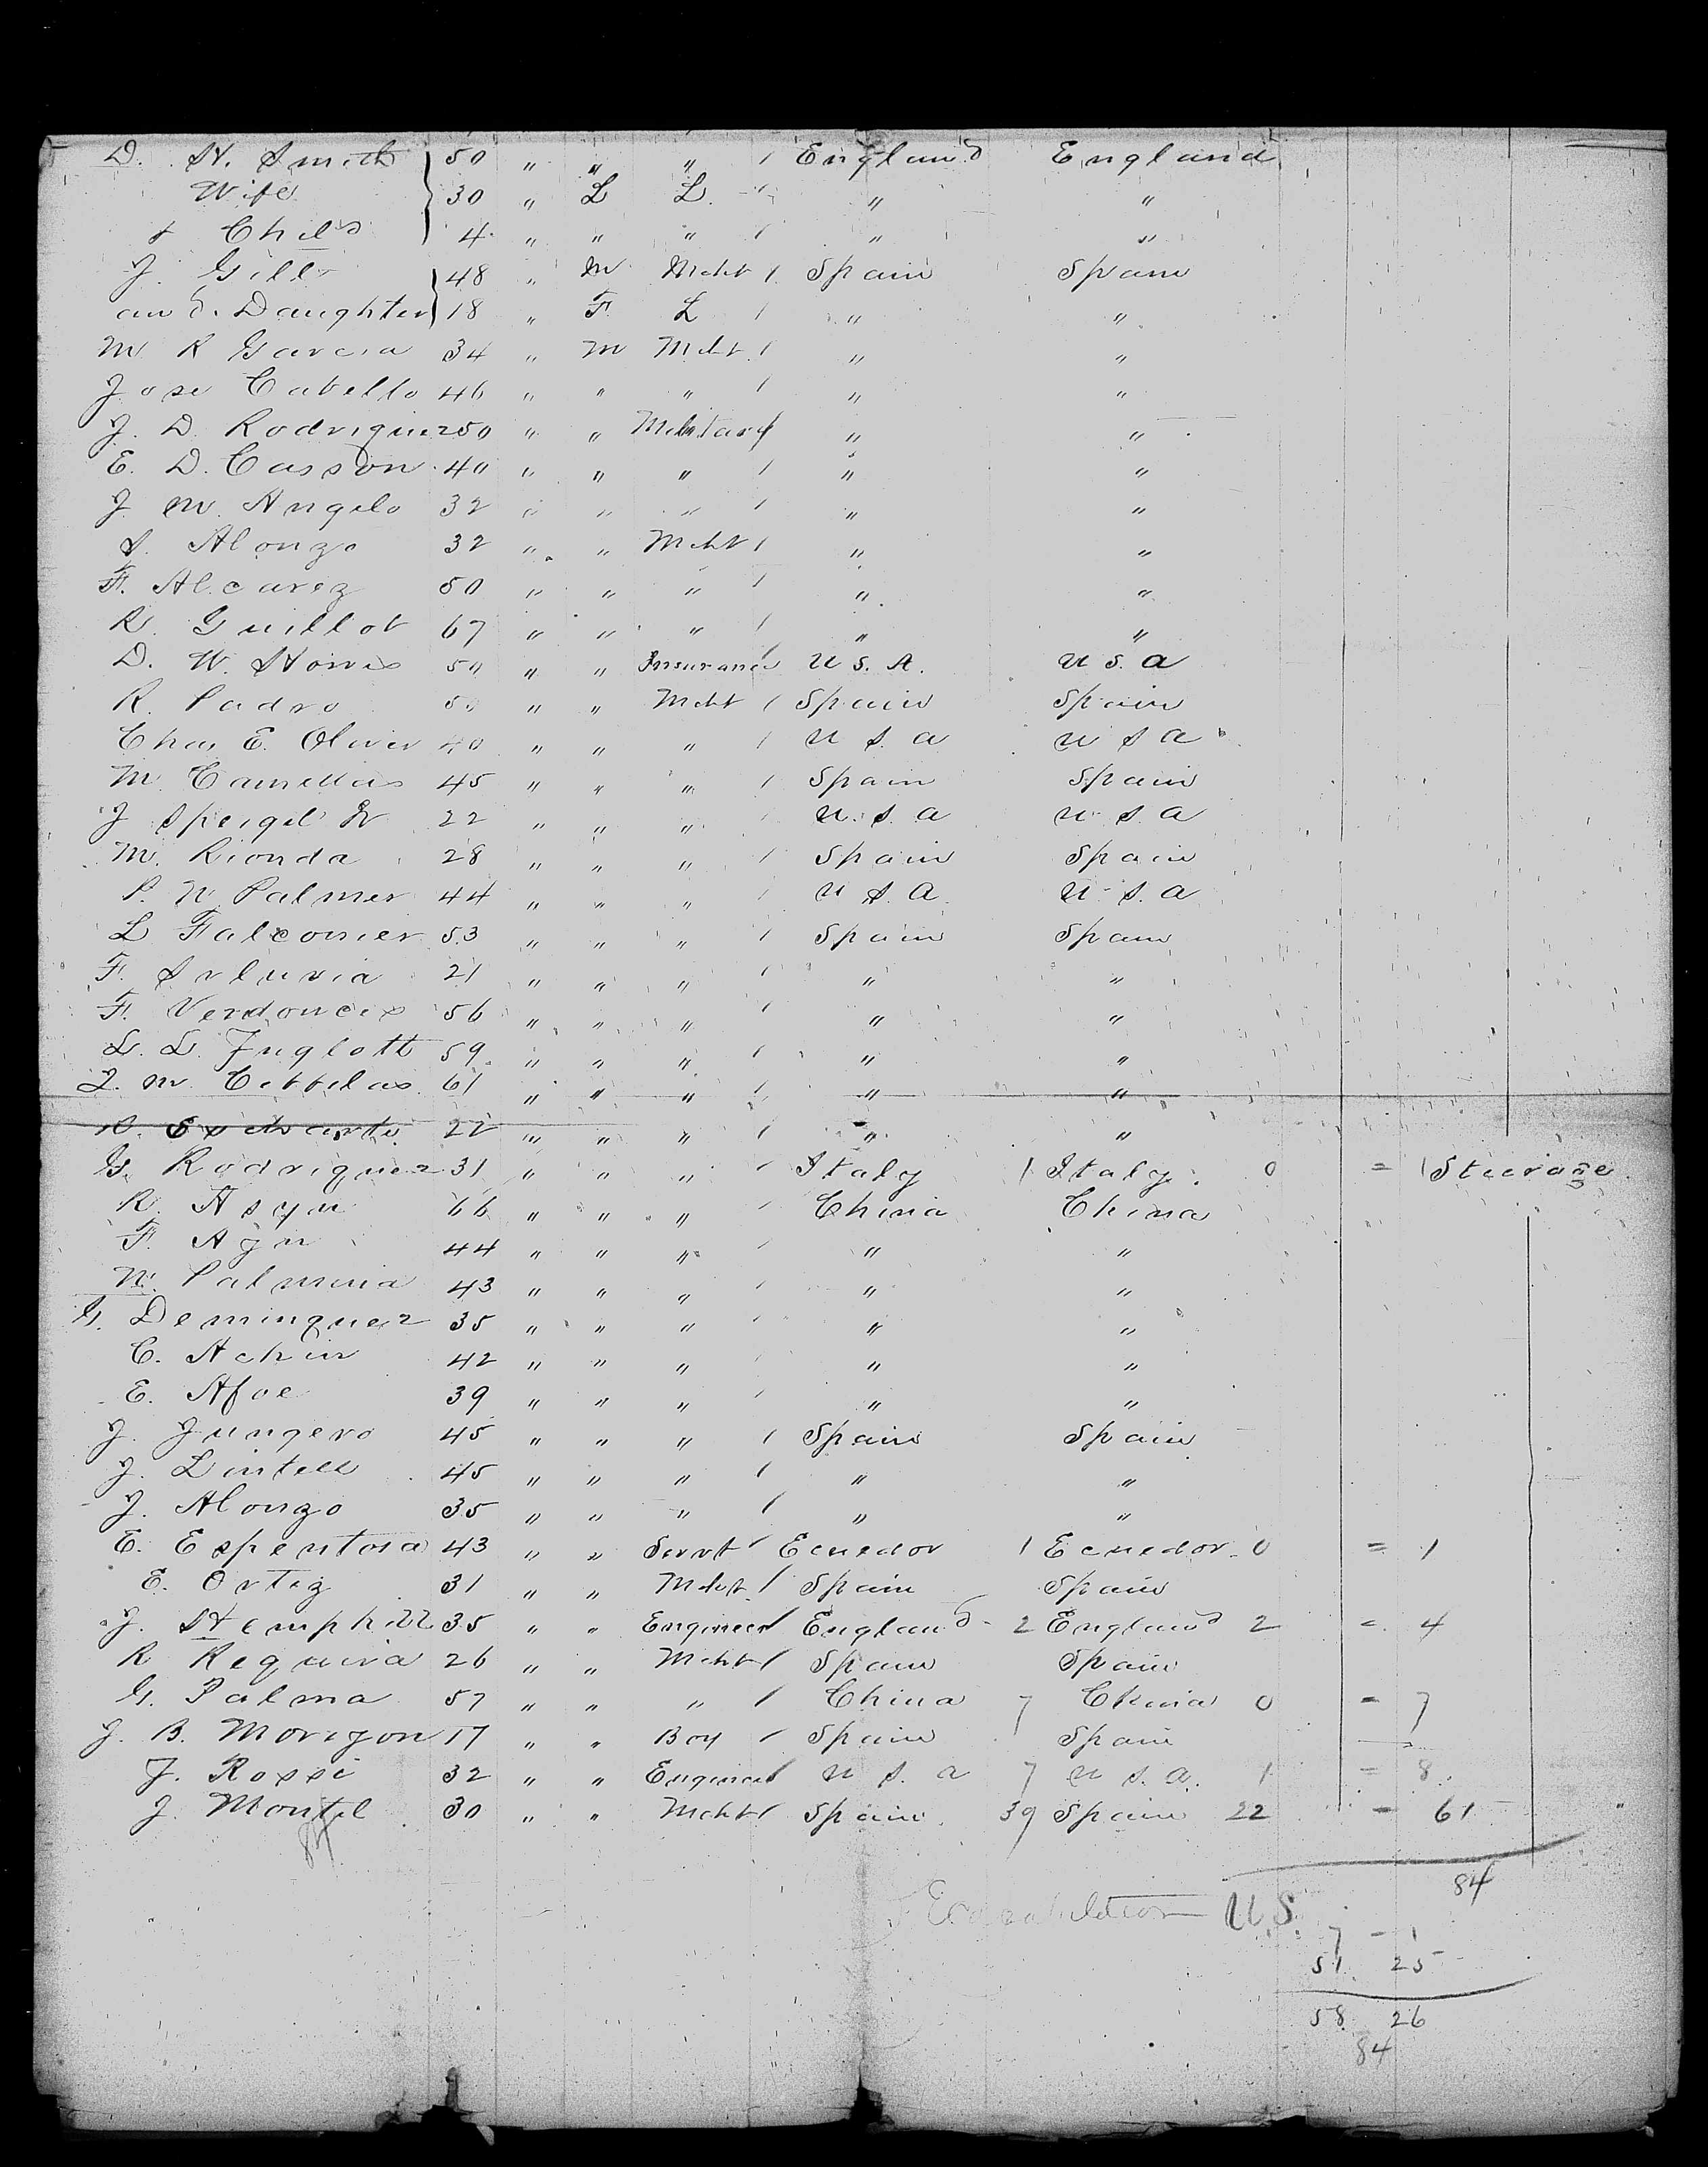 D. H. Smith } 50 " " " / England England
Wife } 30 " L L. / " "
& Child } 4 " " " / " "
J. Gill } 48 " M Mcht / Spain Spain
and. Daughter } 18 " F. L / " "
M R Garcia 34 " M Mcht / " "
Jose Cabello 46 " " " / " "
J. D. Rodriguez 50 " " Military / " "
E. D. Casson 40 " " " / " "
J. M. Angelo 32 " " " / " "
S. Alonzo 32 " " Mcht / " "
F. Alcarez 50 " " " / " "
R. Guillot 67 " " " / " "
D. W. 50 " " Insurance U S. A. U S. A
R. Padro " " Mcht / Spain Spain
Chas E. Oliver 40 " " " / U S A U S A
M. 45 " " " / Spain Spain
J Speigel Jr 22 " " " / U. S. A U S. A
M. Rionda 28 " " " / Spain Spain
P. N. Palmer 44 " " " / U S. A. U S. A
L Falconier 53 " " " / Spain Spain
F. 21 " " " / " "
F. 56 " " " / " "
L. L. Juglott 59 " " " / " "
J. M. 61 " " " / " "
22 " " " / " "
G. Rodriguez 31 " " " / Italy 1 Italy. 0 = 1 Steerage.
R. Asyn 66 " " " / China China
F. Ajn 44 " " " / " "
N. Palmina 43 " " " / " "
G. Deminguez 35 " " " / " "
C. Achin 42 " " " / " "
E. Afoe 39 " " " / " "
J. Jungero 45 " " " / Spain Spain
J. Lintell 45 " " " / " "
J. Alonzo 35 " " " / " "
E. Espentosa 43 " " Servt / Ecuedor 1 Ecuedor 0 = 1
E. Ortiz 31 " " Mcht / Spain Spain
J. Hemphill 35 " " Engineer / England 2 England 2 = 4
R Requira 26 " " Mcht / Spain Spain
G. Palma 57 " " " / China 7 China 0 = 7
J. B. Morejon 17 " " Boy / Spain Spain
J. Rossi 32 " " Engineer / U S. A 7 U S. A. 1 = 8
J. Montel 30 " " Mcht / Spain. 39 Spain 22 = 61
84
84
U.S.
7 - 1
51 25
58 26
84